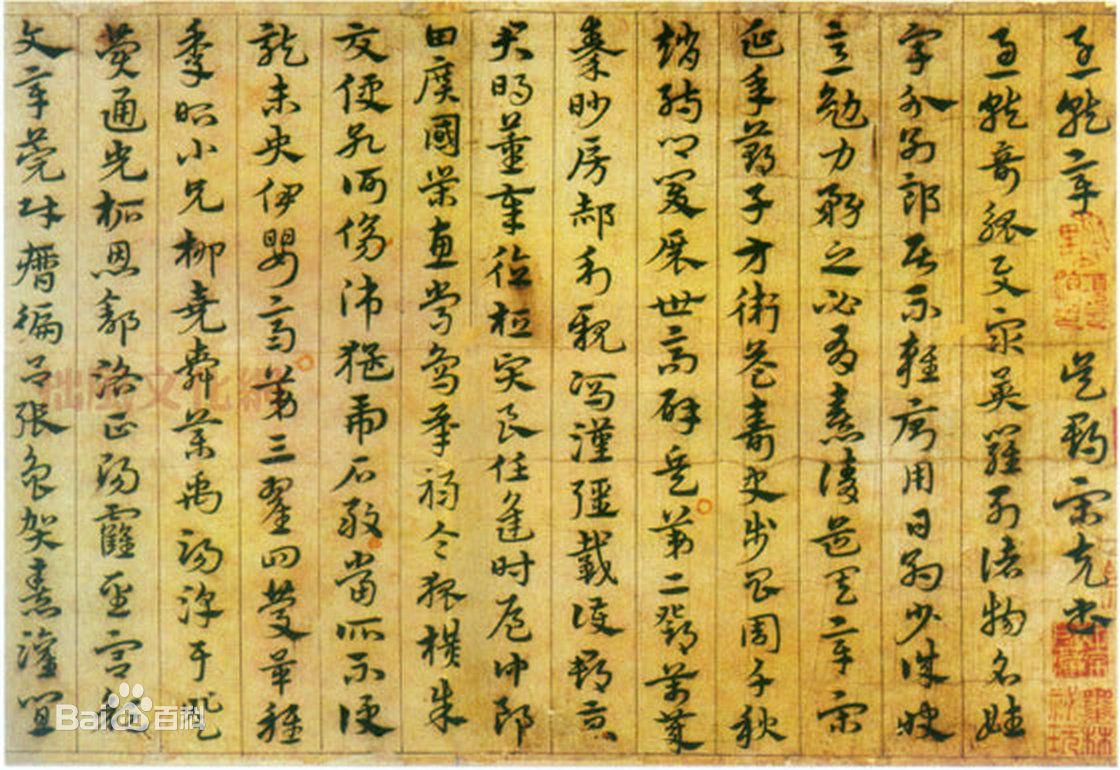 急就章 吴郡宋克書
急就奇觚與衆異羅列諸物名姓
字分別部居不雜廁用日約少誠快
意勉力務之必有憙請道其章宋
延年鄭子方衛益壽史步昌周千秋
趙孺卿爰展世高辟兵第二鄧萬歲
秦眇房郝利親馮漢彊戴護郡景
君明董奉德桓賢良任逢時侯仲郎
田廣國榮惠常烏承祿令狐橫朱
交便孔何傷師猛虎石敢當所不侵
龍未央伊嬰齊第三翟回慶畢稚
季昭小兄柳堯舜藥禹湯淳于登
費通光柘恩舒路正陽霍聖宮
文章莞財歷編呂張魯賀憙灌宜
拙風文化網
Baidu百科